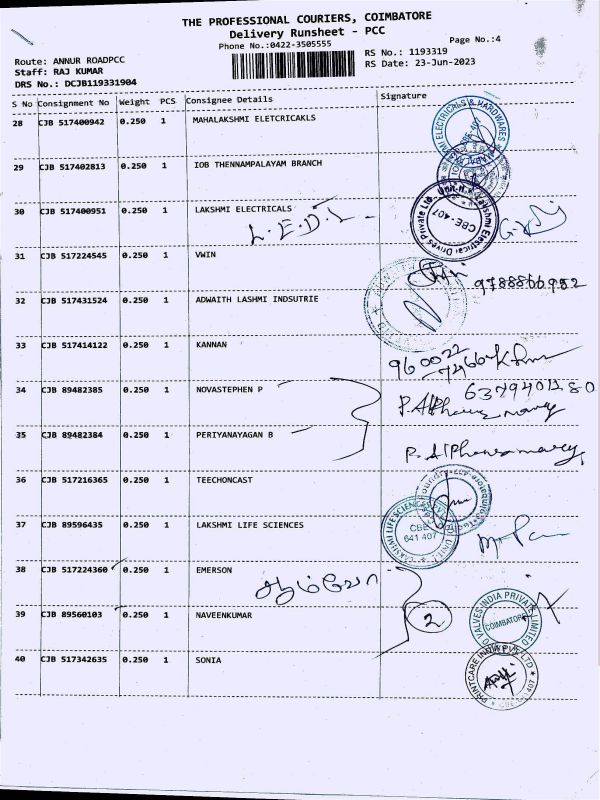 THE PROFESSIONAL COURIERS, COIMBATORE
Delivery Runsheet - PCC
Phone No.:0422-3505555
Page No.:4
Route: ANNUR ROADPCC
Staff: RAJ KUMAR
DRS No.: DCJB119331904
RS No.: 1193319
RS Date: 23-Jun-2023
S No Consignment No Weight PCS Consignee Details Signature
28 CJB 517400942 0.250 1 MAHALAKSHMI ELETCRICAKLS
29 CJB 517402813 0.250 1 IOB THENNAMPALAYAM BRANCH
30 CJB 517400951 0.250 1 LAKSHMI ELECTRICALS
L.E.D.L
Lakshmi Electrical Drives Private Ltd. Unit-II
CBE-407
31 CJB 517224545 0.250 1 VWIN
9788866982
32 CJB 517431524 0.250 1 ADWAITH LASHMI INDSUTRIE
33 CJB 517414122 0.250 1 KANNAN
960022
7466
34 CJB 89482385 0.250 1 NOVASTEPHEN P
6379401180
35 CJB 89482384 0.250 1 PERIYANAYAGAN B
36 CJB 517216365 1 0.250 TEECHONCAST
37 CJB 89596435 0.250 1 LAKSHMI LIFE SCIENCES
LAKSHMI LIFE SCIENCES
CBE
641 407
38 CJB 517224360 0.250 1 EMERSON
39 CJB 89560103 0.250 1 NAVEENKUMAR
2
VALVES INDIA PRIVATE LIMITED
COIMBATORE
40 CJB 517342635 0.250 1 SONIA
PRINTCARE INDIA PVT LTD